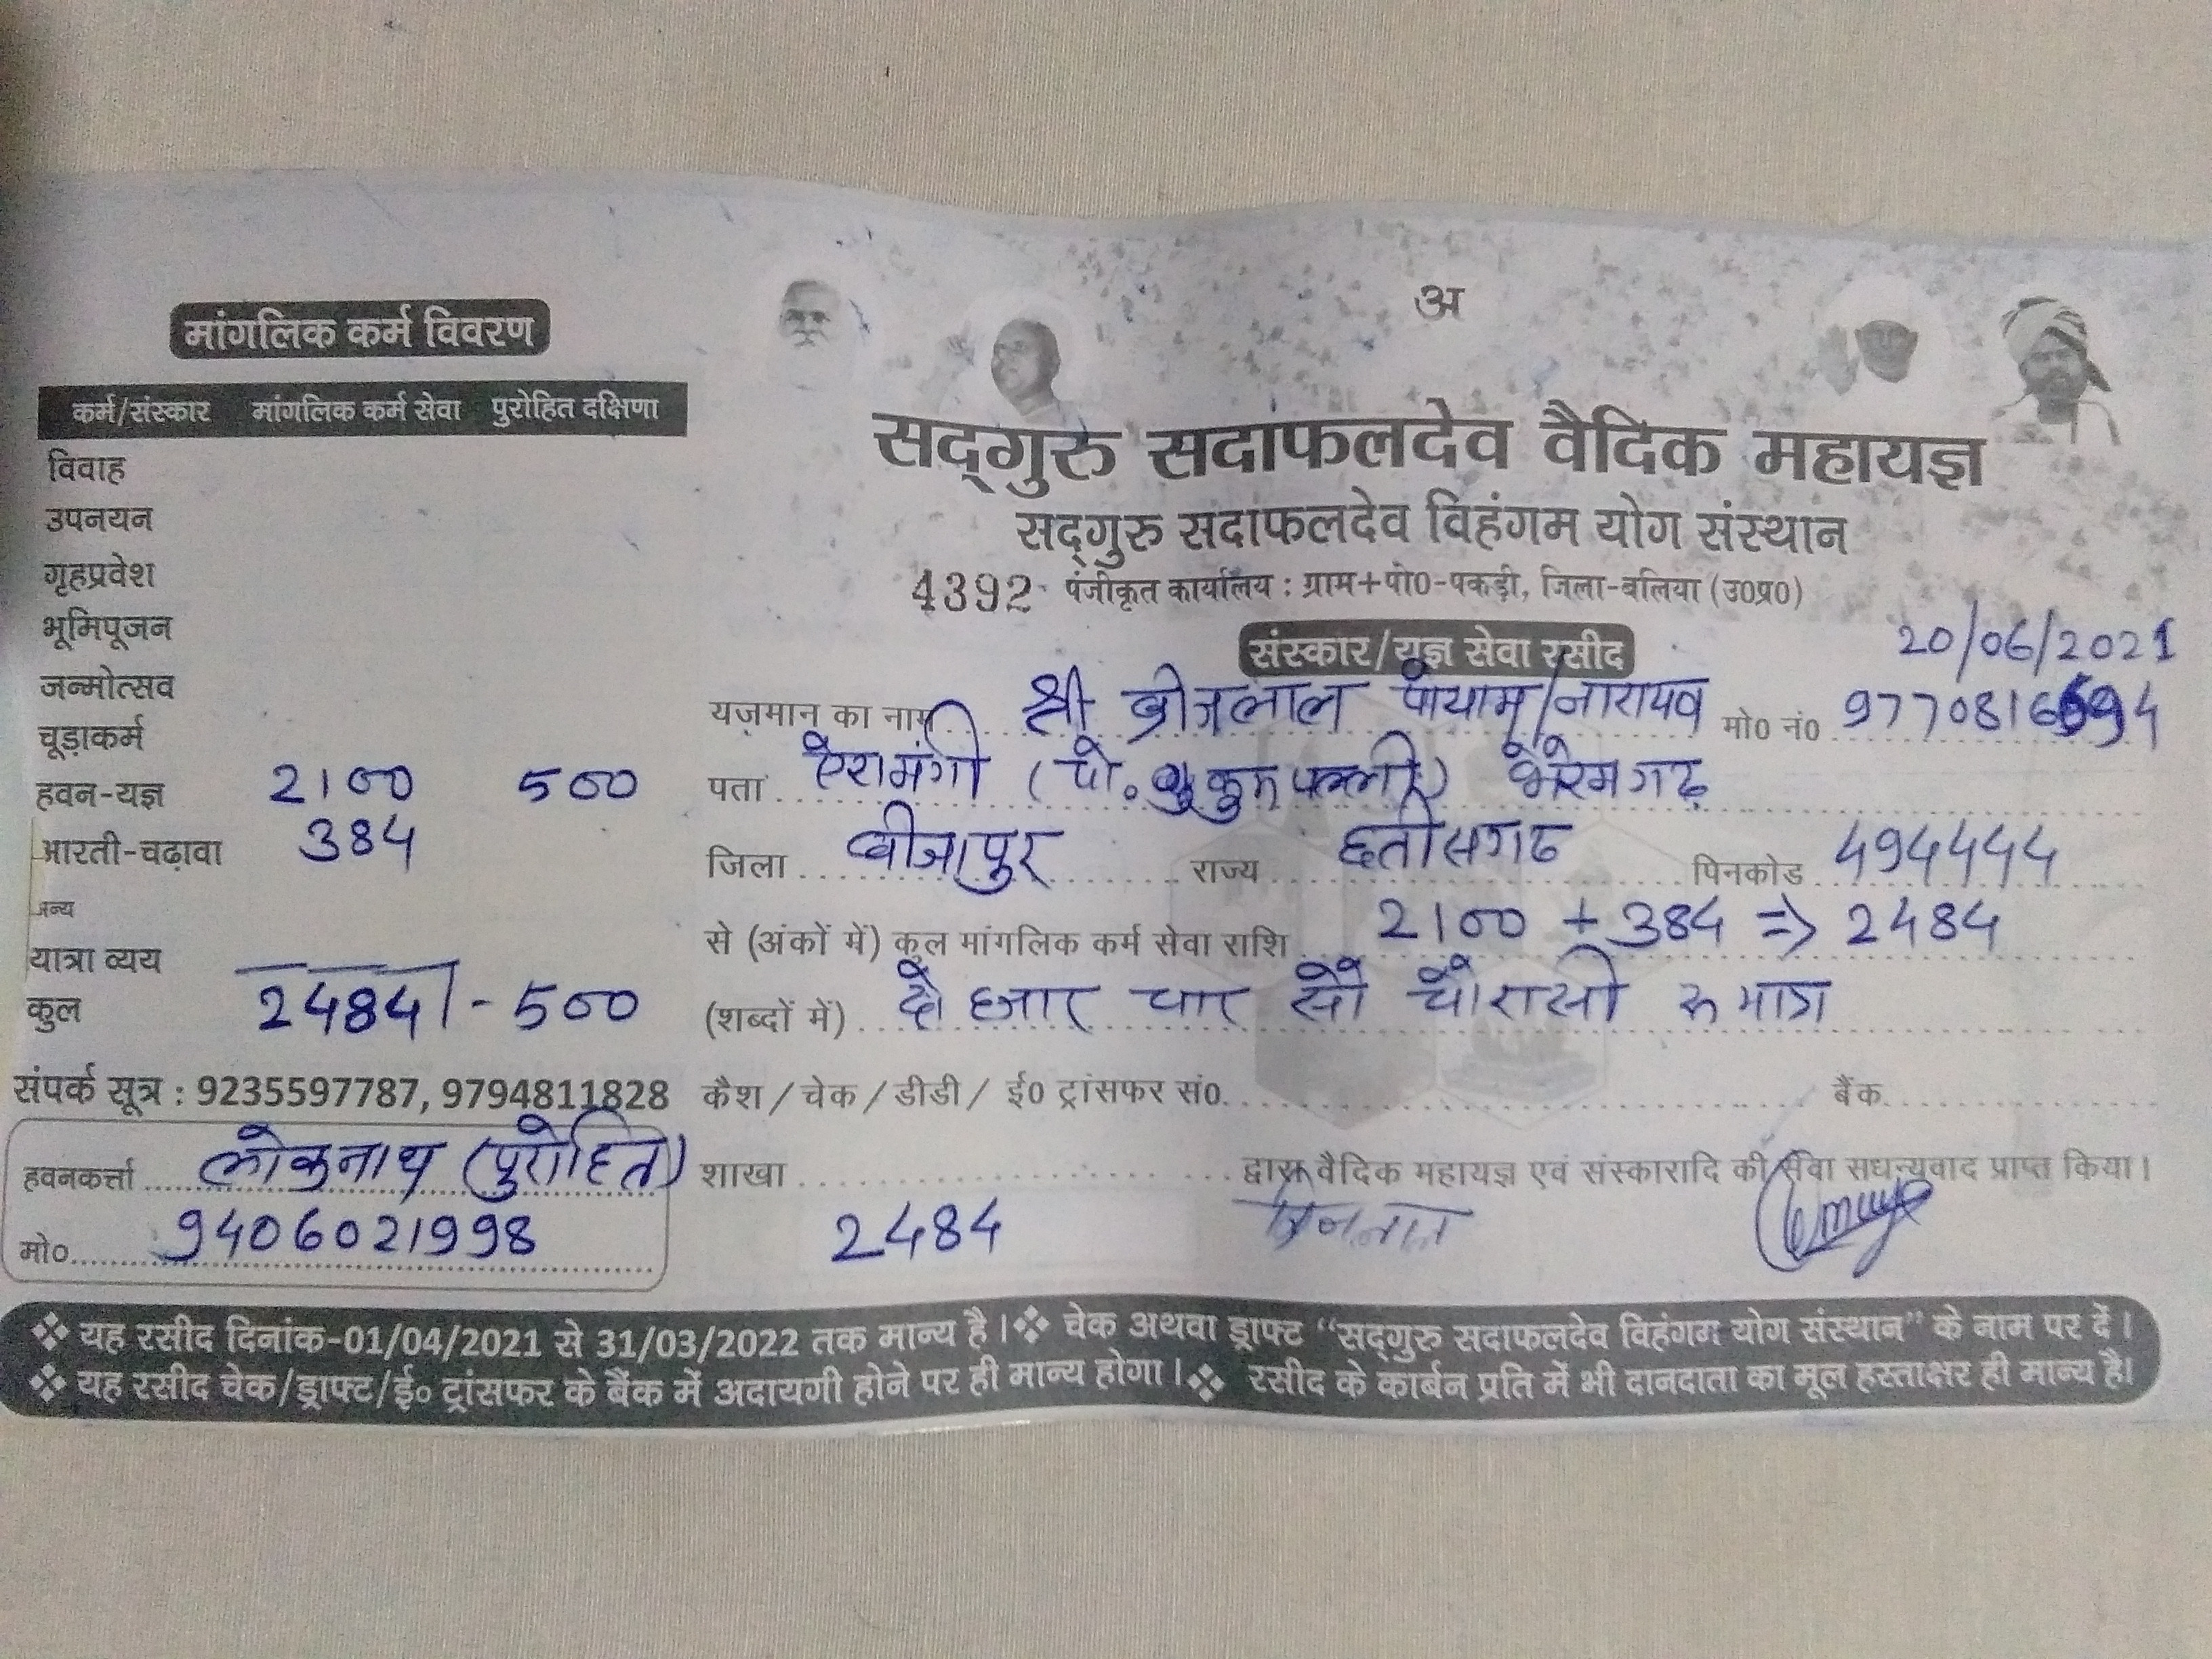 मांगलिक कर्म विवरण
कर्म/संस्कार मांगलिक कर्म सेवा पुरोहित दक्षिणा
विवाह
उपनयन
गृहप्रवेश
भूमिपूजन
जन्मोत्सव
चूड़ाकर्म
हवन-यज्ञ 2100 500
आरती-चढ़ावा 384
अन्य
यात्रा व्यय
कुल 2484/- 500
संपर्क सूत्र : 9235597787, 9794811828
हवनकर्त्ता लोकनाथ (पुरोहित)
मो० 9406021998
अ
सद्‌गुरु सदाफलदेव वैदिक महायज्ञ
सद्‌गुरु सदाफलदेव विहंगम योग संस्थान
4392 पंजीकृत कार्यालय : ग्राम+पो0-पकड़ी, जिला-बलिया (उ0प्र0)
संस्कार/यज्ञ सेवा रसीद 20/06/2021
यजमान का नाम श्री ब्रीजलाल पोयाम/नारायण मो0 नं0
पता ऐरामंगी (पो. ) भैरमगढ़
जिला बीजापुर राज्य छत्तीसगढ पिनकोड 494444
से (अंकों में) कुल मांगलिक कर्म सेवा राशि 2100 + 384 => 2484
(शब्दों में) दो हजार चार सौ चौरासी रु मात्र
कैश / चेक / डीडी / ई0 ट्रांसफर सं0. बैंक
शाखा द्वारा वैदिक महायज्ञ एवं संस्कारादि की सेवा सधन्यवाद प्राप्त किया।
2484
❖ यह रसीद दिनांक-01/04/2021 से 31/03/2022 तक मान्य है। ❖ चेक अथवा ड्राफ्ट “सद्‌गुरु सदाफलदेव विहंगम योग संस्थान” के नाम पर दें।
❖ यह रसीद चेक/ड्राफ्ट/ई० ट्रांसफर के बैंक में अदायगी होने पर ही मान्य होगा। ❖ रसीद के कार्बन प्रति में भी दानदाता का मूल हस्ताक्षर ही मान्य है।